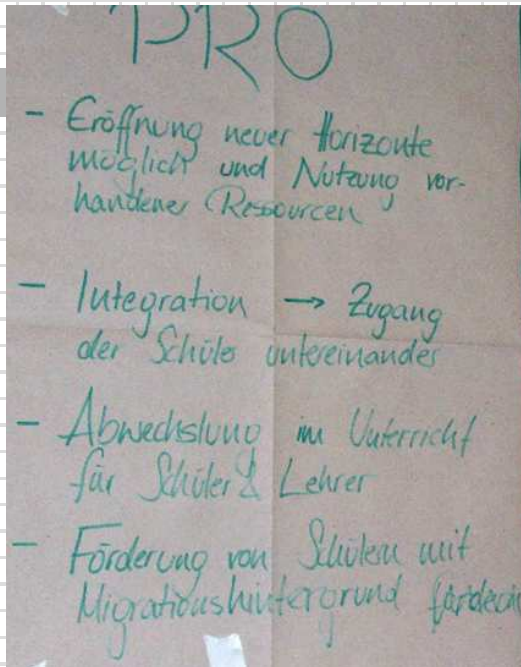 PRO
- Eröffnung neuer Horizonte
möglich und Nutzung vor-
handener Ressourcen
- Integration → Zugang
der Schüler untereinander
- Abwechslung im Unterricht
für Schüler & Lehrer
- Förderung von Schülern mit
Migrationshintergrund fördern